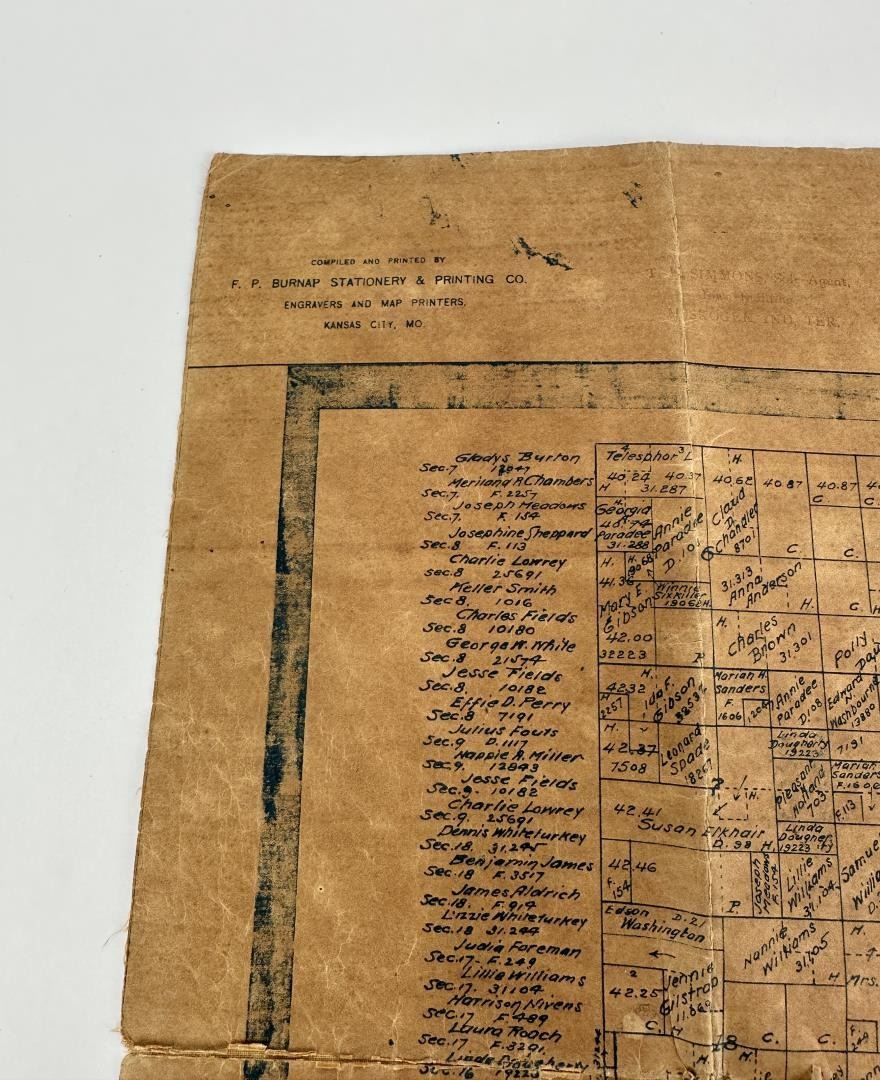 COMPILED AND PRINTED BY
F. P. BURNAP STATIONERY & PRINTING CO.
ENGRAVERS AND MAP PRINTERS,
KANSAS CITY, MO.
SIMMONS, Agent,
IND. TER.
Gladys Burton
Sec. 7
Meriland R. Chambers
Sec. 7. F. 2257
Joseph Meadows
Sec. 7. F. 154
Josephine Sheppard
Sec. 8 F. 113
Charlie Lowrey
Sec. 8 25691
Keller Smith
Sec. 8. 1016
Charles Fields
Sec. 8 10180
George W. White
Sec. 8 21574
Jesse Fields
Sec. 8. 10182
Effie D. Perry
Sec. 8 7191
Julius Fouts
Sec. 9 D. 1117
Nappie A. Miller
Sec. 9. 12899
Jesse Fields
Sec. 9- 10182
Charlie Lowrey
Sec. 9. 25691
Dennis Whiteturkey
Sec. 18. 31.245
Benjamin James
Sec. 18 F. 3517
James Aldrich
Sec. 18. F. 914
Lizzie Whiteturkey
Sec. 18 31.244
Judia Foreman
Sec. 17- F. 249
Lillie Williams
Sec. 17. 31104
Harrison Nivens
Sec. 17 F. 489
Laura Roach
Sec. 17 F. 3291
Linda Dougherty
Sec. 16 19223
4 3
Telesphor L H.
40.24 40.37 40.62 40.87 40.87
H 31.287 C. C.
Georgia
40.74
Paradee
31.288
Annie
Paradie
D. 108
Claud
D.
Chandler
8701
C. C.
H. H.
41.36
Mary E.
Gibson
42.00
32223
Winnie
Sixkiller
H.
31.313
Anna
Anderson
H. C.
H.
Charles
Brown
31.301
P
Polly
42.32 H.
H
2257
Ida F.
Gibson
Mariah H.
Sanders
F.
1606
Annie
Paradee
D. 108
Edward
Washbourne
13880
H.
42.37
7508
Leonard
Spade
18267
Linda
Dougherty
19223
7191
Pleasant
Holland
703
Mariah
Sanders
F. 160
F. 113
P H.
42.41
Susan Elkhair
D. 98 H.
Linda
19223
42.46
F.
154
P.
Joseph
Meadows
F. 154
Lillie
Williams
31.104
Samuel
Edson D. 21
Washington
Nannie
Williams
31.105
H.
H Mrs.
2
42.25
C.
Jennie
Gilstrap
11.669
H
18
C. C.
F.
249
H. H.